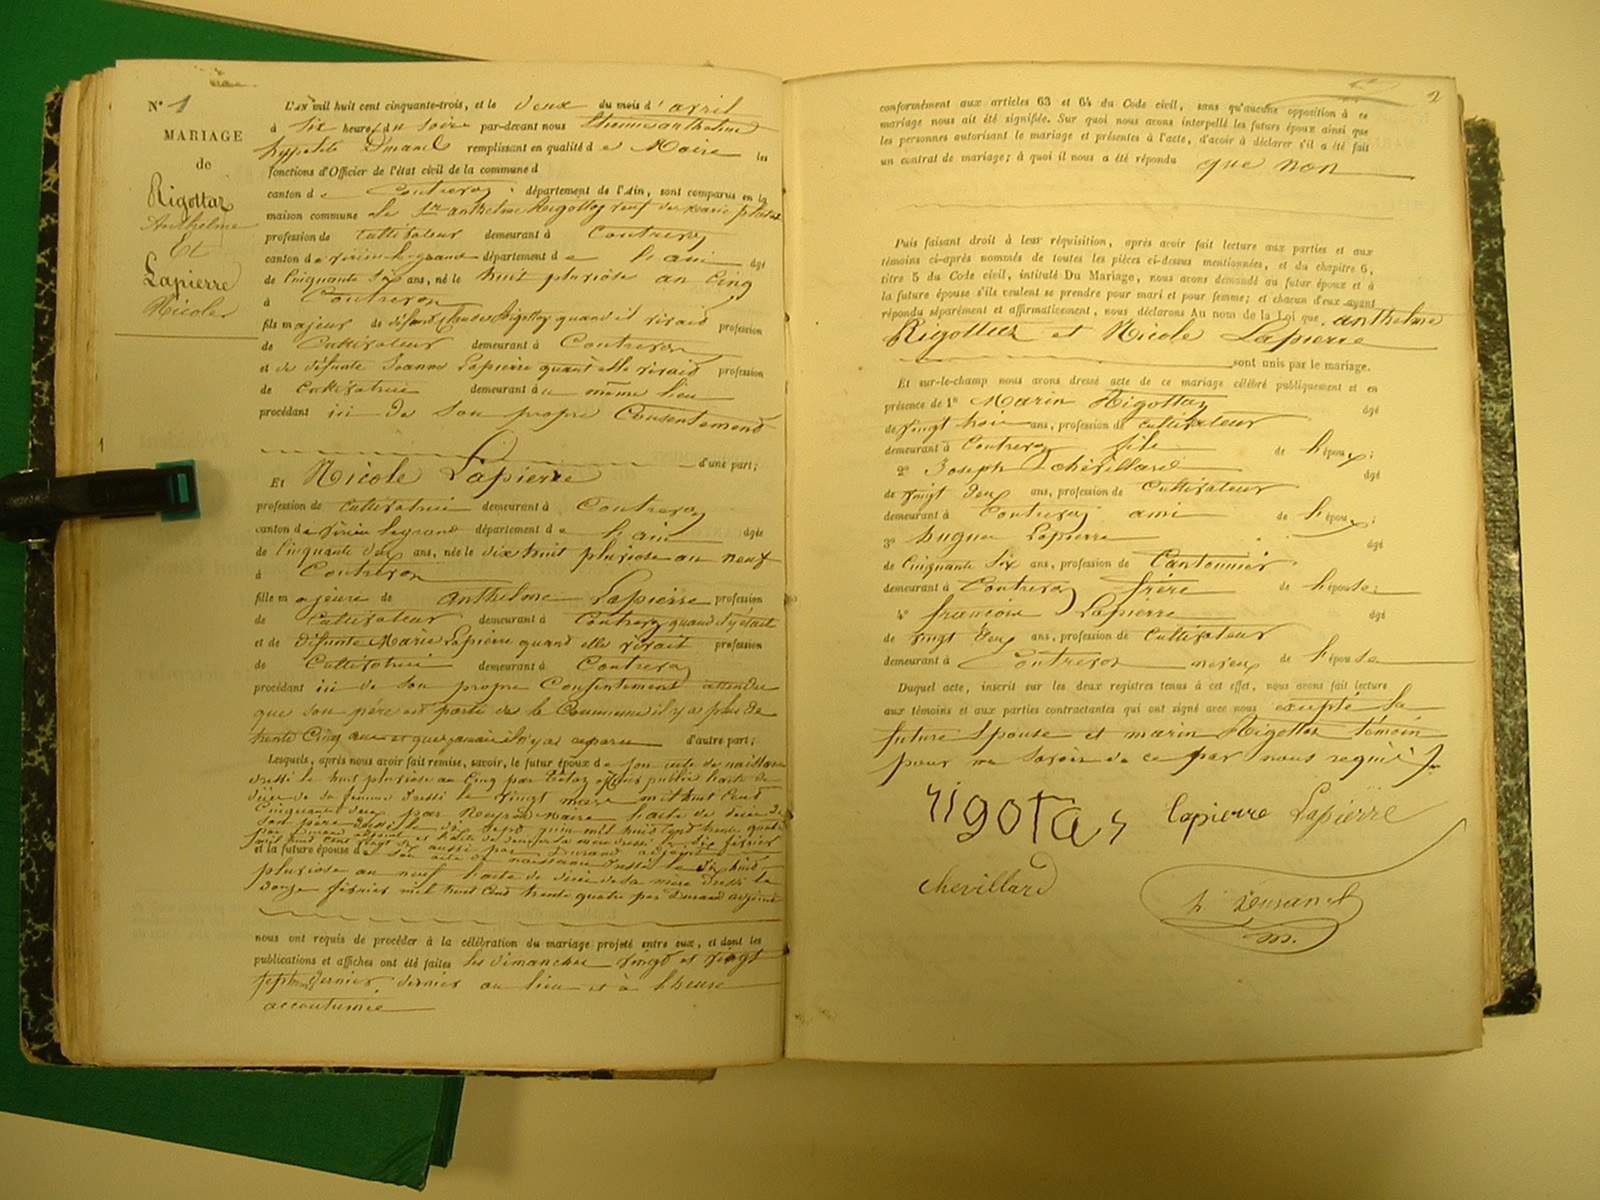 N° 1
MARIAGE
de
Rigottaz
Anthelme
Et
Lapierre
Nicole
L'AN mil huit cent cinquante-trois, et le deux du mois d'avril
à six heures du soire par-devant nous Etienne anthelme
hyppolite Durand remplissant en qualité de Maire les
fonctions d'Officier de l'état civil de la commune d
canton de Contrevoz département de l'Ain, sont comparus en la
maison commune le Sr anthelme Rigottaz veuf de Marie
profession de Cultivateur demeurant à Contrevoz
canton de virieu le grand département de l'ain âgé
de Cinquante Six ans, né le huit pluviose an Cinq
à Contrevoz
fils majeur de défunt Claude Rigottaz quand il vivait profession
de Cultivateur demeurant à Contrevoz
et de défunte Jeanne Lapierre quant elle vivait profession
de Cultivatrice demeurant au même lieu
procédant ici de Son propre Consentement
d'une part;
Et Nicole Lapierre
profession de Cultivatrice demeurant à Contrevoz
canton de virieu legrand département de l'ain âgée
de Cinquante deux ans, née le dix huit pluviose an neuf
à Contrevoz
fille majeure de anthelme Lapierre profession
de Cultivateur demeurant à Contrevoz quand il y était
et de défunte Marie Lapierre quand elle vivait profession
de Cultivatrice demeurant à Contrevoz
procédant ici de son propre Consentement attendu
que son père est parti de la Commune il y a plus de
trente Cinq ans et que jamais il n'y a reparu d'autre part;
Lesquels, après nous avoir fait remise, savoir, le futur époux de son acte de naissance
dressé le huit pluviose an Cinq par officier public l'acte de
décès de sa femme dressé le vingt mars mil huit Cent
Cinquante deux par Neyron Maire l'acte de décès de
son père dressé le juin mil huit Cent trente quatre
par Durand adjoint et l'acte de décès de sa mère dressé le dix février
mil huit cent vingt aussi par Durand adjoint
et la future épouse de son acte de naissance dressé le dix huit
pluviose an neuf l'acte de décès de sa mère dressé le
douze février mil huit Cent trente quatre par Durand adjoint
nous ont requis de procéder à la célébration du mariage projeté entre eux, et dont les
publications et affiches ont été faites les dimanches vingt et vingt
sept dernier au lieu et à l'heure
accoutumée
2
conformément aux articles 63 et 64 du Code civil, sans qu'aucune opposition à ce
mariage nous ait été signifiée. Sur quoi nous avons interpellé les futurs époux ainsi que
les personnes autorisant le mariage et présentes à l'acte, d'avoir à déclarer s'il a été fait
un contrat de mariage; à quoi il nous a été répondu que non
Puis faisant droit à leur réquisition, après avoir fait lecture aux parties et aux
témoins ci-après nommés de toutes les pièces ci-dessus mentionnées, et du chapitre 6,
titre 5 du Code civil, intitulé Du Mariage, nous avons demandé au futur époux et à
la future épouse s'ils veulent se prendre pour mari et pour femme; et chacun d'eux ayant
répondu séparément et affirmativement, nous déclarons Au nom de la Loi que anthelme
Rigottaz et Nicole Lapierre
sont unis par le mariage.
Et sur-le-champ nous avons dressé acte de ce mariage célébré publiquement et en
présence de 1° Marin Rigottaz âgé
de vingt trois ans, profession de cultivateur
demeurant à Contrevoz fils de l'époux;
2° Joseph chévillard âgé
de vingt deux ans, profession de Cultivateur
demeurant à Contrevoz ami de l'époux;
3° hugues Lapierre âgé
de Cinquante Six ans, profession de Cantonnier
demeurant à Contrevoz frère de l'épouse;
4° francois Lapierre âgé
de vingt deux ans, profession de Cultivateur
demeurant à Contrevoz neveu de l'épouse
Duquel acte, inscrit sur les deux registres tenus à cet effet, nous avons fait lecture
aux témoins et aux parties contractantes qui ont signé avec nous excepté la
future Epouse et marin Rigottaz témoin
pour ne savoir de ce par nous requis
rigotas lapierre Lapierre
chevillard
h. Durand
m.